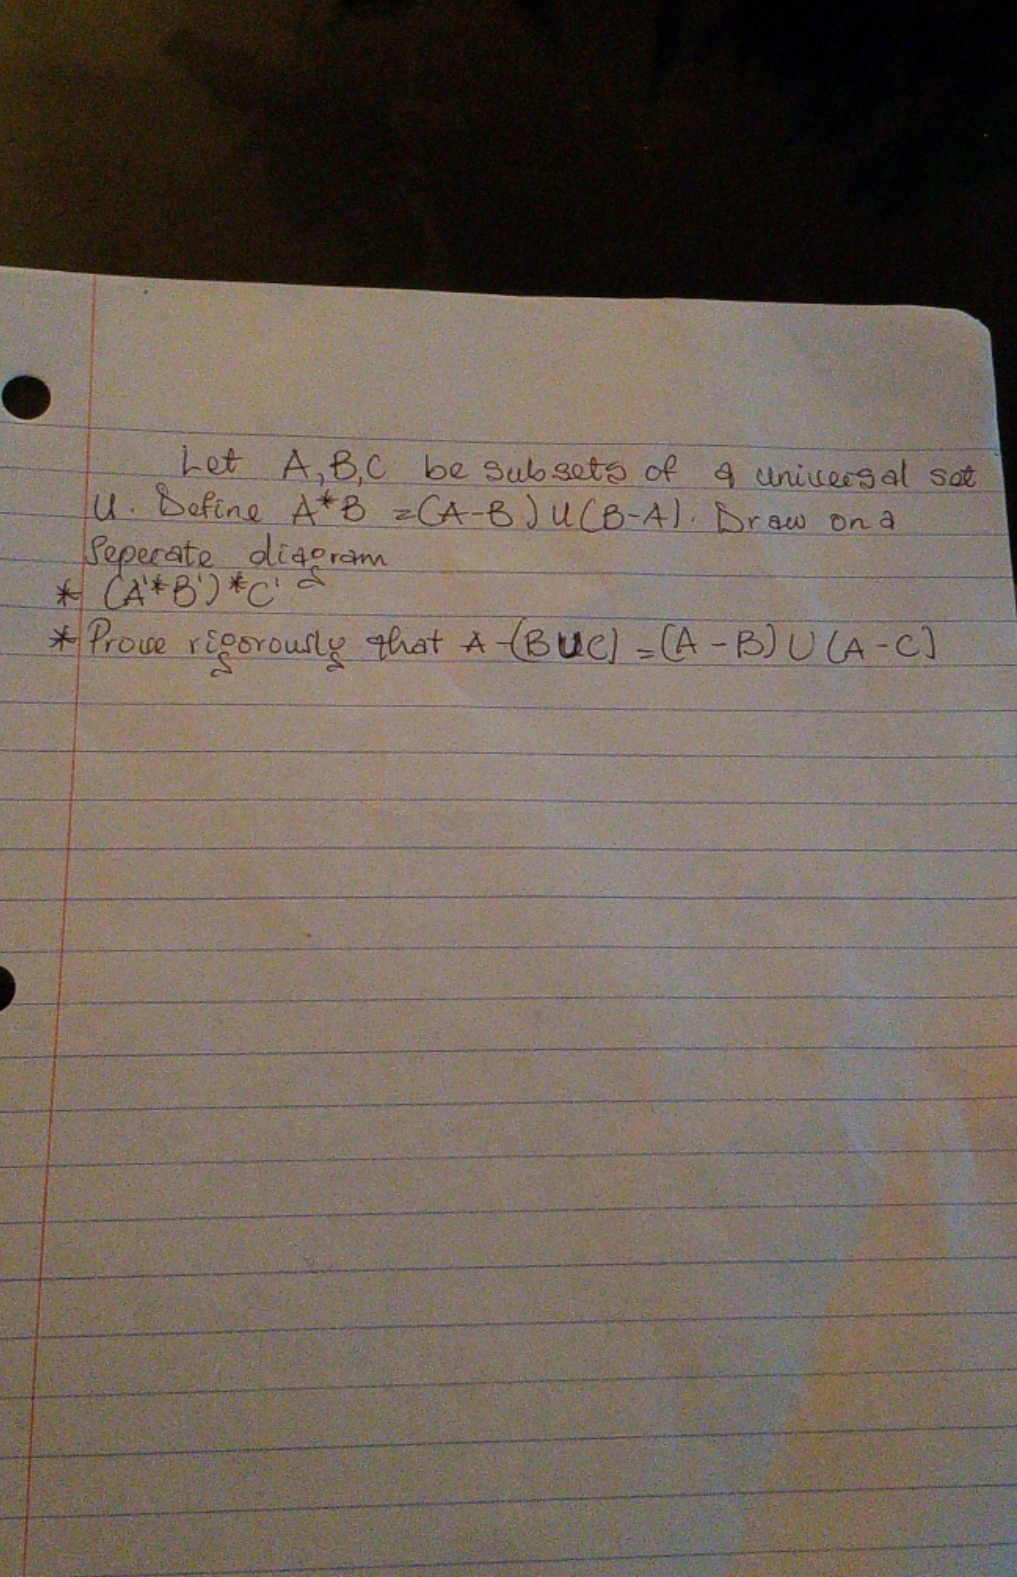 Let A,B,C be subsets of a universal set
U. Define A*B =(A-B)U(B-A). Draw on a
Seperate diagram
* (A'*B')*C'
* Prove rigorously that A-(BUC)=(A-B)U(A-C)